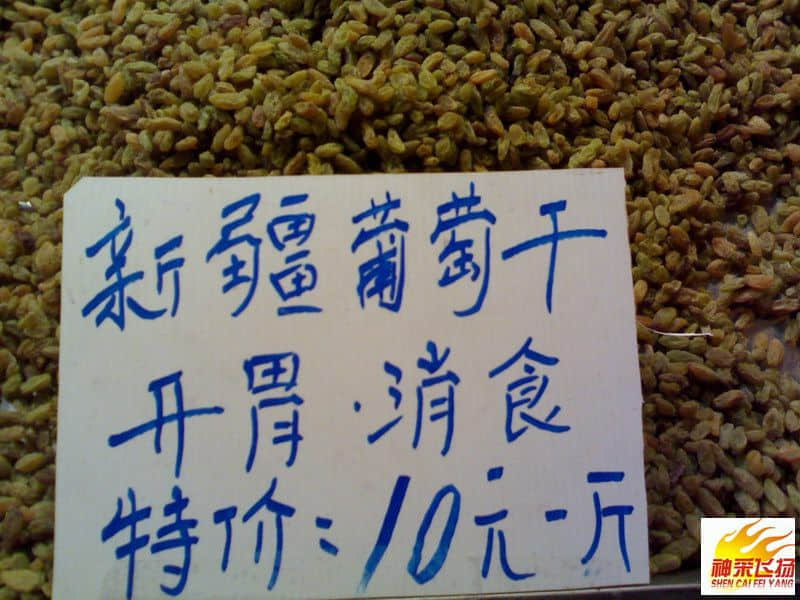 新疆葡萄干
开胃·消食
特价:10元一斤
神采飞扬
SHEN CAI FEI YANG